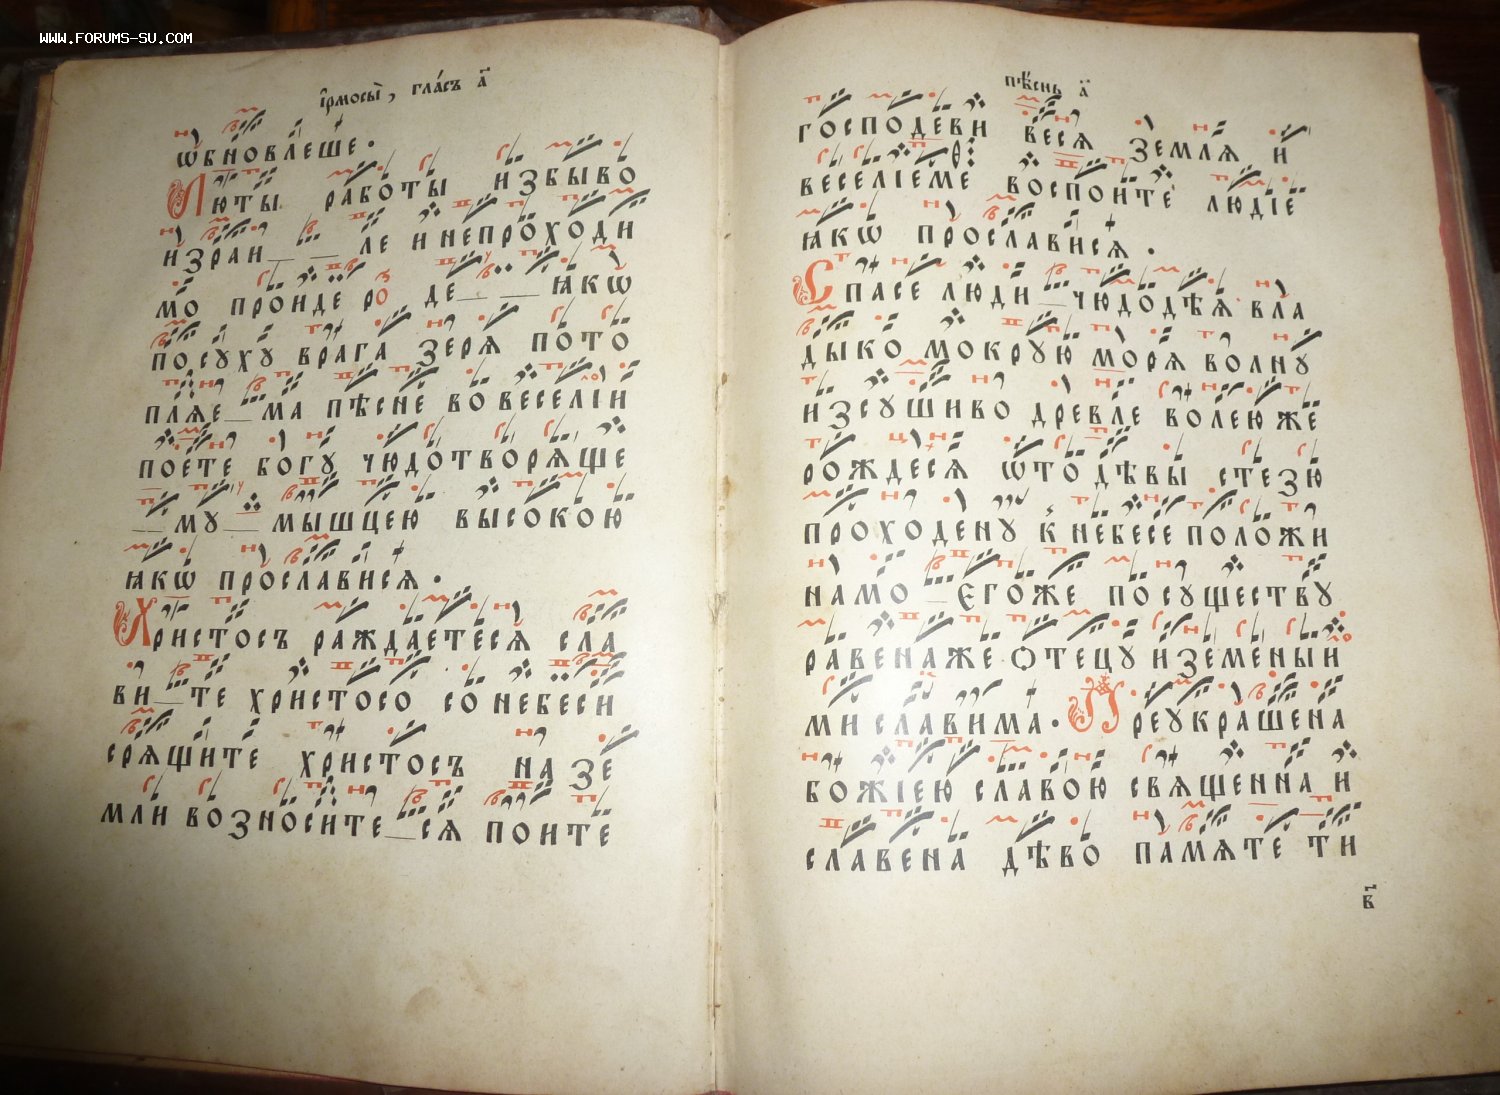 WWW.FORUMS-SU.COM
і҆рмосы̀, гла́съ а҃
ѡбновлѣше.
Люты работы избыво
израи_ _ле и непроходи
мо проиде ро де_ _ ꙗкѡ
посꙋхꙋ врага зеря пото
пляе_ма пѣсне во веселіи
поете богꙋ чюдотворяще
_мꙋ_мышцею высокою
ꙗкѡ прославися.
Христосъ раждаетеся сла
ви_те христосо со небеси
срящите христосъ на зе
мли возносите_ся поите
пѣснь а҃
господеви веся земля и
веселіеме воспоите людіе
ꙗкѡ прославися.
Спасе люди_чюдодѣя вла
дыко мокрꙋю моря волнꙋ
изсꙋшиво древле волеюже
рождеся ѡто дѣвы стезю
проходенꙋ к небесе положи
намо_єгоже посꙋществꙋ
равенаже ѻтецꙋ и земеныи
ми славима. Преукрашена
божіею славою священна и
славена дѣво памяте ти
в҃